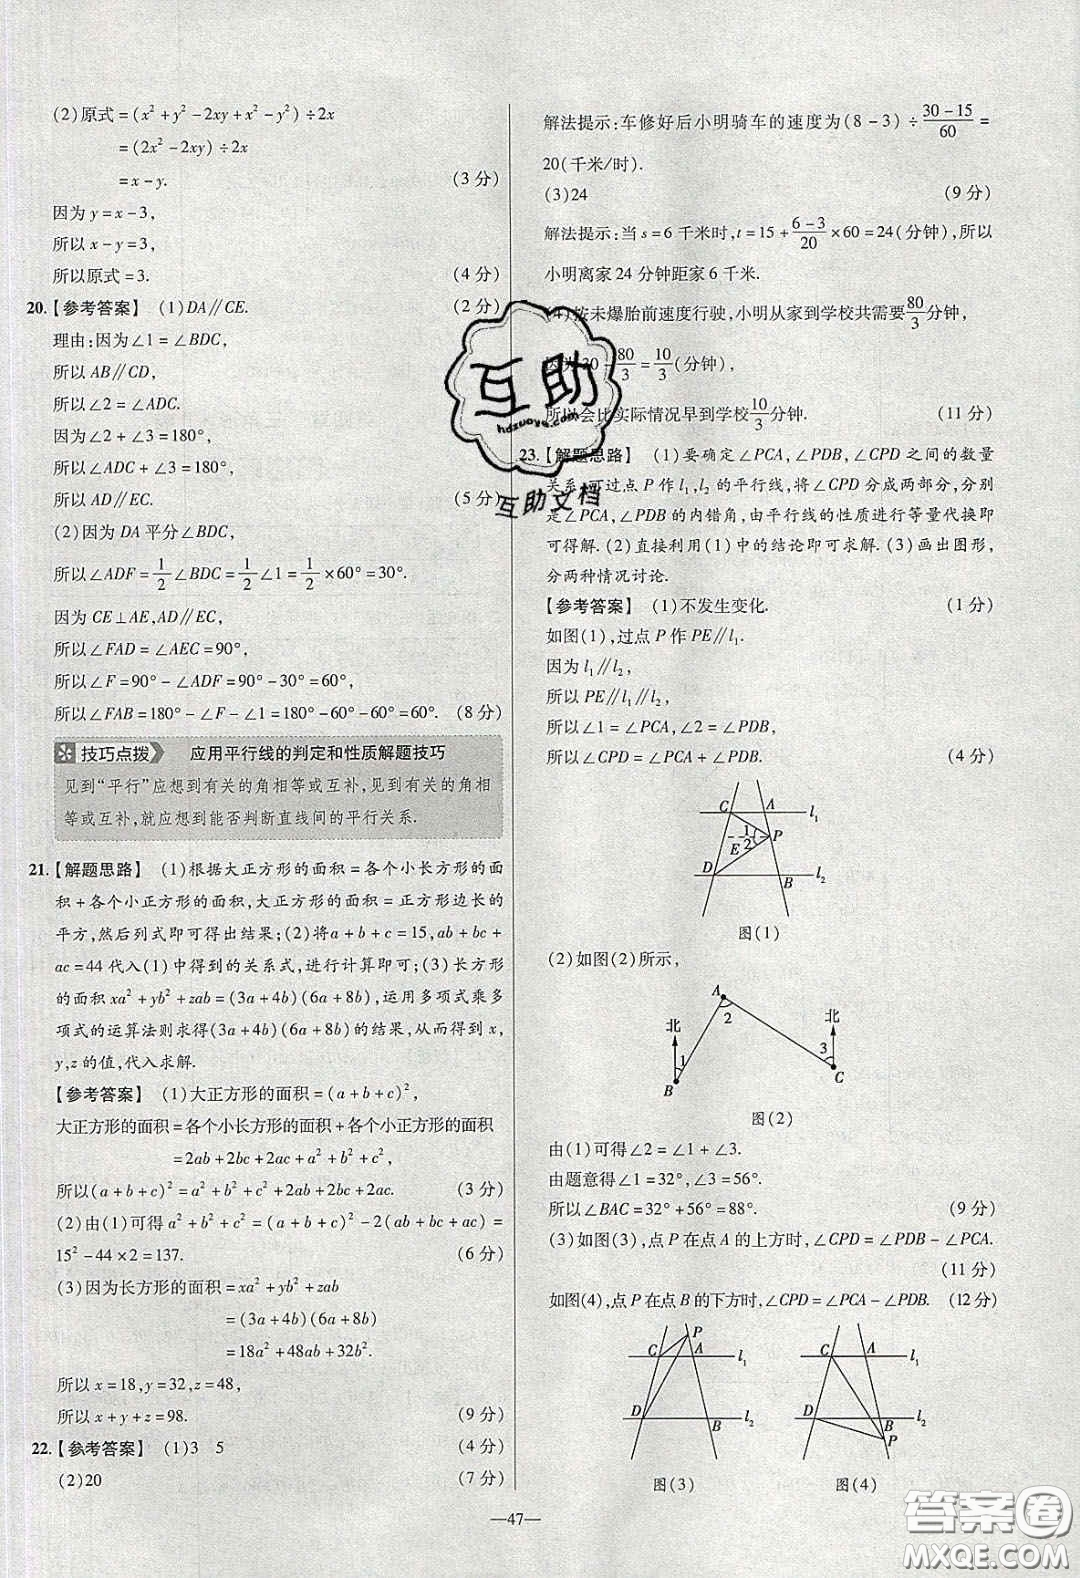 (2)原式=(x²+y²-2xy+x²-y²)÷2x
=(2x²-2xy)÷2x
=x-y. (3 分)
因为 y=x-3,
所以 x-y=3,
所以原式=3. (4 分)
20.【参考答案】 (1)DA∥CE. (2 分)
理由:因为∠1=∠BDC,
所以 AB∥CD,
所以∠2=∠ADC.
因为∠2+∠3=180°,
所以∠ADC+∠3=180°,
所以 AD∥EC. (5 分)
(2)因为 DA 平分∠BDC,
所以∠ADF=1/2∠BDC=1/2∠1=1/2×60°=30°.
因为 CE⊥AE,AD∥EC,
所以∠FAD=∠AEC=90°,
所以∠F=90°-∠ADF=90°-30°=60°,
所以∠FAB=180°-∠F-∠1=180°-60°-60°=60°. (8 分)
技巧点拨 应用平行线的判定和性质解题技巧
见到“平行”应想到有关的角相等或互补,见到有关的角相
等或互补,就应想到能否判断直线间的平行关系.
21.【解题思路】 (1)根据大正方形的面积=各个小长方形的面
积+各个小正方形的面积,大正方形的面积=正方形边长的
平方,然后列式即可得出结果;(2)将a+b+c=15,ab+bc+
ac=44代入(1)中得到的关系式,进行计算即可;(3)长方形
的面积xa²+yb²+zab=(3a+4b)(6a+8b),运用多项式乘多
项式的运算法则求得(3a+4b)(6a+8b)的结果,从而得到x,
y,z的值,代入求解.
【参考答案】 (1)大正方形的面积=(a+b+c)²,
大正方形的面积=各个小长方形的面积+各个小正方形的面积
=2ab+2bc+2ac+a²+b²+c²,
所以(a+b+c)²=a²+b²+c²+2ab+2bc+2ac. (3 分)
(2)由(1)可得a²+b²+c²=(a+b+c)²-2(ab+bc+ac)=
15²-44×2=137. (6 分)
(3)因为长方形的面积=xa²+yb²+zab
=(3a+4b)(6a+8b)
=18a²+48ab+32b².
所以 x=18,y=32,z=48,
所以 x+y+z=98. (9 分)
22.【参考答案】 (1)3 5 (4 分)
(2)20 (7 分)
解法提示:车修好后小明骑车的速度为(8-3)÷(30-15)/60=
20(千米/时).
(3)24 (9 分)
解法提示:当 s=6 千米时,t=15+(6-3)/20×60=24(分钟),所以
小明离家 24 分钟距家 6 千米.
4)按未爆胎前速度行驶,小明从家到学校共需要80/3分钟,
因为30-80/3=10/3(分钟),
所以会比实际情况早到学校10/3分钟. (11 分)
23.【解题思路】 (1)要确定∠PCA,∠PDB,∠CPD之间的数量
关系,可过点 P 作 l₁,l₂ 的平行线,将∠CPD 分成两部分,分别
是∠PCA,∠PDB 的内错角,由平行线的性质进行等量代换即
可得解.(2)直接利用(1)中的结论即可求解.(3)画出图形,
分两种情况讨论.
【参考答案】 (1)不发生变化. (1 分)
如图(1),过点 P 作 PE∥l₁.
因为 l₁∥l₂,
所以 PE∥l₁∥l₂,
所以∠1=∠PCA,∠2=∠PDB,
所以∠CPD=∠PCA+∠PDB. (4 分)
C A l₁
1 P
E 2
D B l₂
图(1)
(2)如图(2)所示,
A
2
北 北
1 3
B C
图(2)
由(1)可得∠2=∠1+∠3.
由题意得∠1=32°,∠3=56°,
所以∠BAC=32°+56°=88°. (9 分)
(3)如图(3),点 P 在点 A 的上方时,∠CPD=∠PDB-∠PCA.
(11 分)
如图(4),点 P 在点 B 的下方时,∠CPD=∠PCA-∠PDB. (12 分)
P
C A l₁
D B l₂
图(3)
C A l₁
D B l₂
P
图(4)
—47—
互助
hdzuoye.com
互助文档
答案圈
MXQE.COM